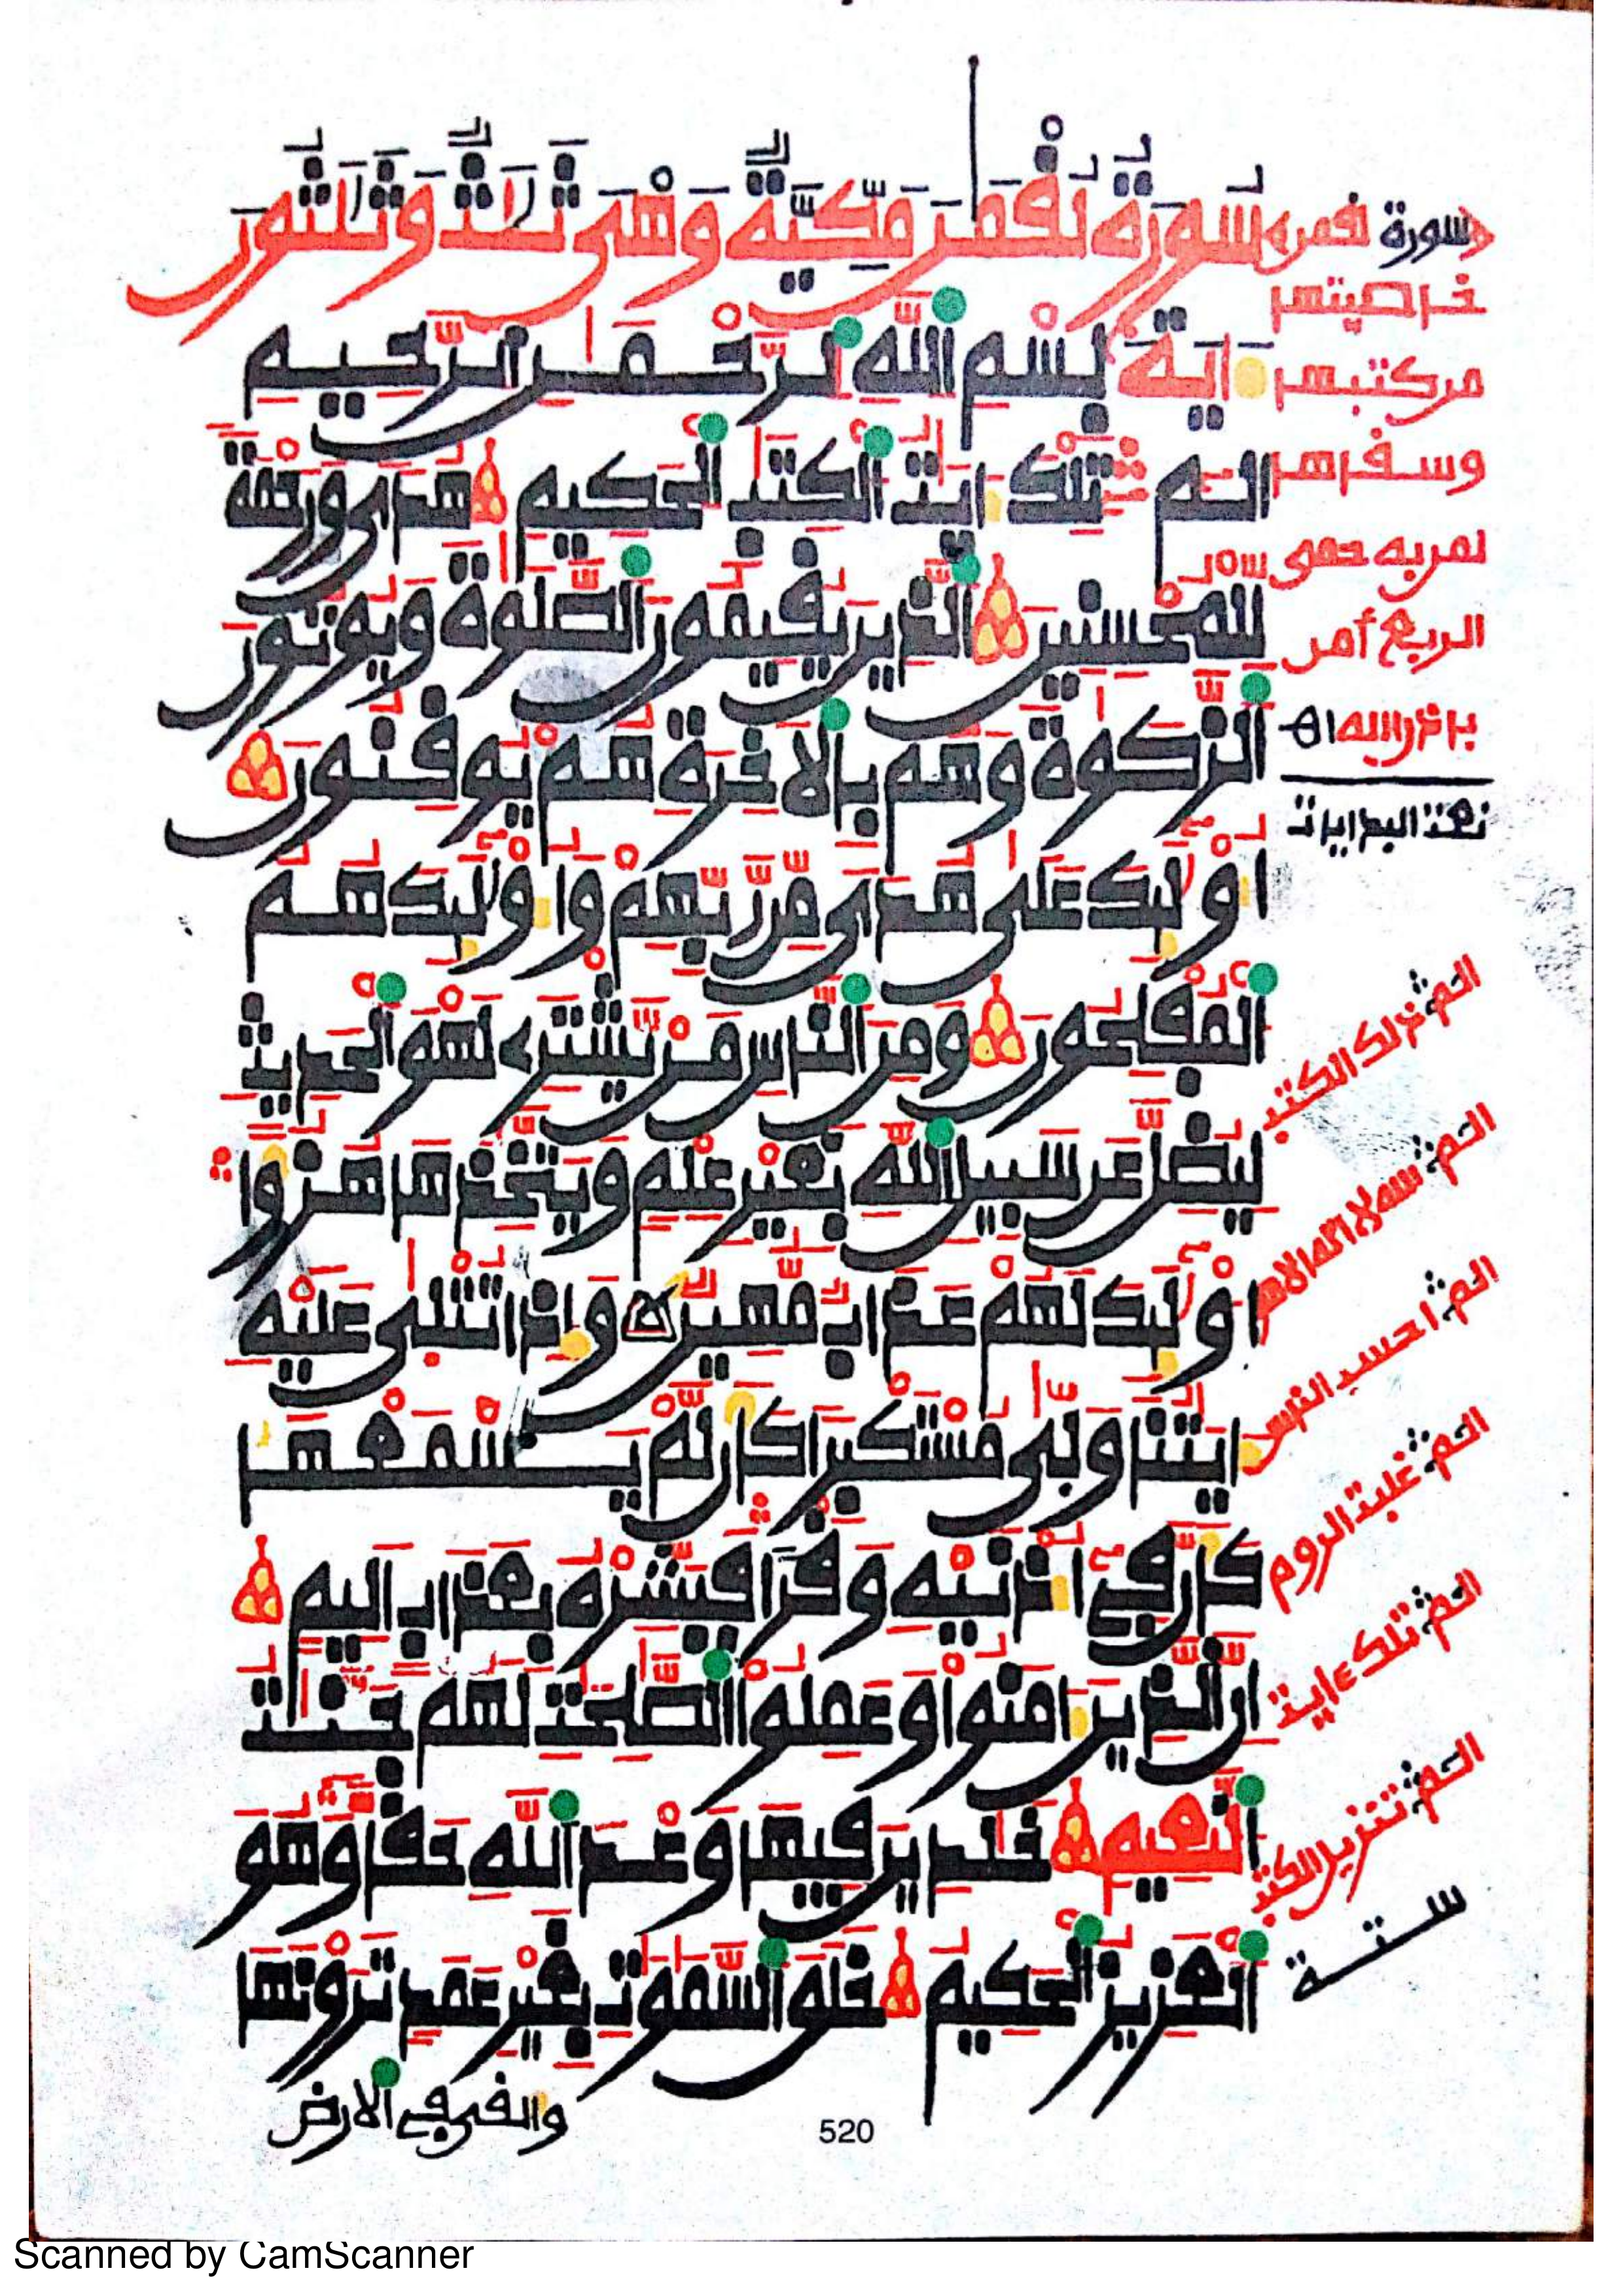 سُورَةُ لُقْمَٰنَ مَكِّيَّةٌ وَهْىَ ثَلَٰثٌ وَثَلَٰثُونَ
ءَايَةً بِسْمِ اللَّهِ الرَّحْمَٰنِ الرَّحِيمِ
الٓمٓ تِلْكَ ءَايَٰتُ الْكِتَٰبِ الْحَكِيمِ هُدًى وَرَحْمَةً
لِّلْمُحْسِنِينَ الَّذِينَ يُقِيمُونَ الصَّلَوٰةَ وَيُوتُونَ
الزَّكَوٰةَ وَهُم بِالَاخِرَةِ هُمْ يُوقِنُونَ
أُوْلَٰٓئِكَ عَلَىٰ هُدًى مِّن رَّبِّهِمْ وَأُوْلَٰٓئِكَ هُمُ
الْمُفْلِحُونَ وَمِنَ النَّاسِ مَنْ يَّشْتَرِے لَهْوَ الْحَدِيثِ
لِيُضِلَّ عَن سَبِيلِ اللَّهِ بِغَيْرِ عِلْمٍ وَيَتَّخِذُهَا هُزُؤًا
أُوْلَٰٓئِكَ لَهُمْ عَذَابٌ مُّهِينٌ وَإِذَا تُتْلَىٰ عَلَيْهِ
ءَايَٰتُنَا وَلَّىٰ مُسْتَكْبِرًا كَأَن لَّمْ يَسْمَعْهَا
كَأَنَّ فِےٓ أُذْنَيْهِ وَقْرًا فَبَشِّرْهُ بِعَذَابٍ اَلِيمٍ
إِنَّ الَّذِينَ ءَامَنُوا وَعَمِلُوا الصَّٰلِحَٰتِ لَهُمْ جَنَّٰتُ
النَّعِيمِ خَٰلِدِينَ فِيهَا وَعْدَ اللَّهِ حَقًّا وَهُوَ
الْعَزِيزُ الْحَكِيمُ خَلَقَ السَّمَٰوَٰتِ بِغَيْرِ عَمَدٍ تَرَوْنَهَا
وألقى في الارض
520
سورة لقمن
الربيع
نعت البدايات
الم ذلك الكتب
الم الله لا اله الا هو
الم احسب الناس
الم غلبت الروم
الم تلك ءايت
الم تنزيل الكتب
ستة
Scanned by CamScanner